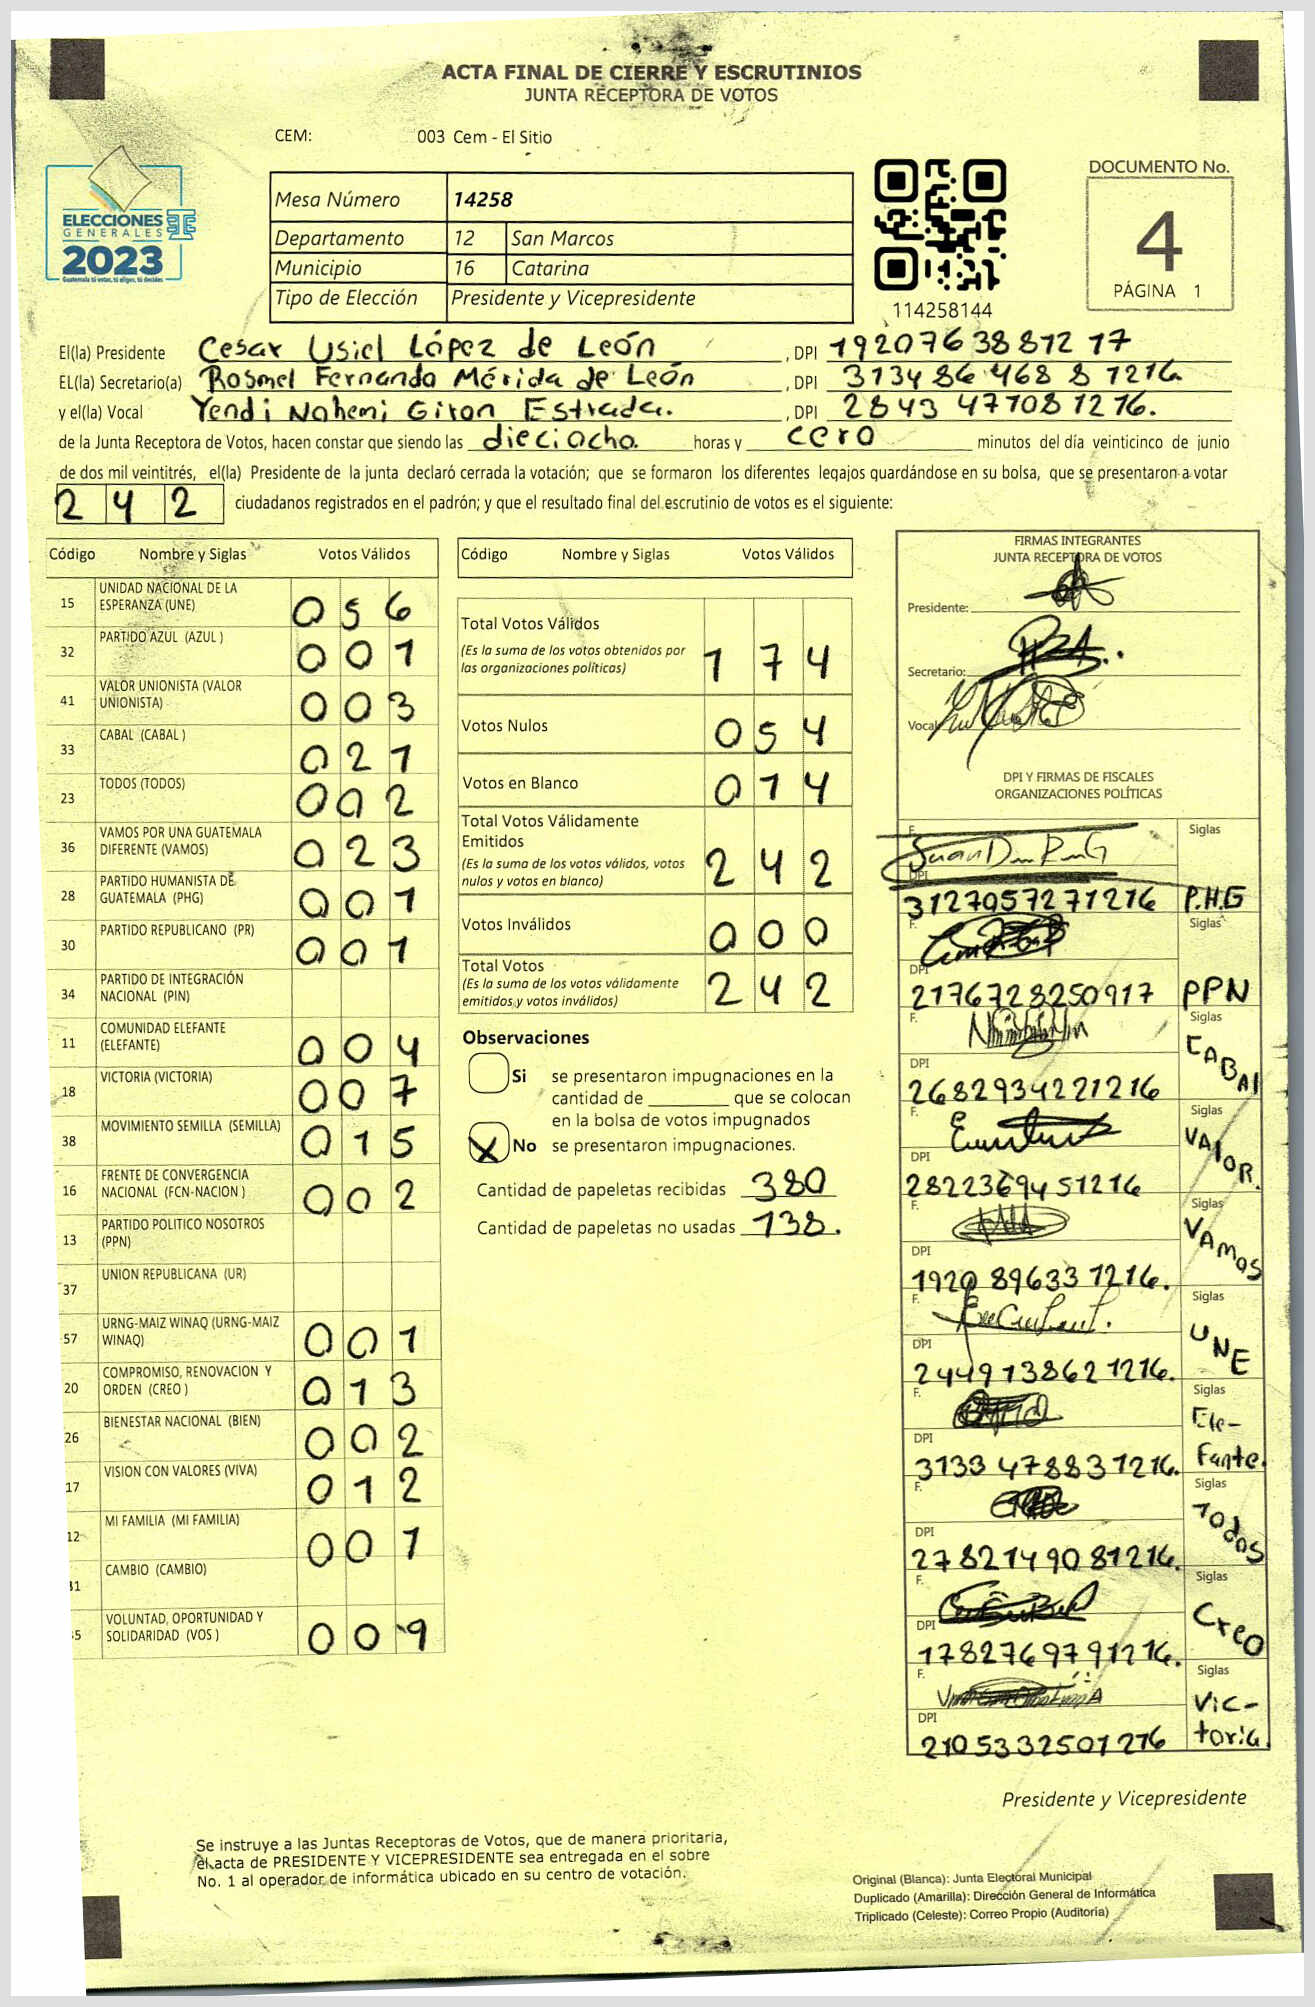 ACTA FINAL DE CIERRE Y ESCRUTINIOS
JUNTA RECEPTORA DE VOTOS
CEM: 003 Cem - El Sitio
ELECCIONES
GENERALES
2023
Guatemala tú votas, tú eliges, tú decides
Mesa Número 14258
Departamento 12 San Marcos
Municipio 16 Catarina
Tipo de Elección Presidente y Vicepresidente
114258144
DOCUMENTO No.
4
PÁGINA 1
El(la) Presidente Cesar Usiel López de León , DPI 1920763881217
EL(la) Secretario(a) Rosmel Fernando Mérida de León , DPI 3134864681216
y el(la) Vocal Yendi Nohemi Giron Estrada. , DPI 2843477081216.
de la Junta Receptora de Votos, hacen constar que siendo las dieciocho. horas y cero minutos del día veinticinco de junio
de dos mil veintitrés, el(la) Presidente de la junta declaró cerrada la votación; que se formaron los diferentes legajos guardándose en su bolsa, que se presentaron a votar
242 ciudadanos registrados en el padrón; y que el resultado final del escrutinio de votos es el siguiente:
Código Nombre y Siglas Votos Válidos
15 UNIDAD NACIONAL DE LA ESPERANZA (UNE) 056
32 PARTIDO AZUL (AZUL ) 001
41 VALOR UNIONISTA (VALOR UNIONISTA) 003
33 CABAL (CABAL ) 021
23 TODOS (TODOS) 002
36 VAMOS POR UNA GUATEMALA DIFERENTE (VAMOS) 023
28 PARTIDO HUMANISTA DE GUATEMALA (PHG) 001
30 PARTIDO REPUBLICANO (PR) 001
34 PARTIDO DE INTEGRACIÓN NACIONAL (PIN)
11 COMUNIDAD ELEFANTE (ELEFANTE) 004
18 VICTORIA (VICTORIA) 007
38 MOVIMIENTO SEMILLA (SEMILLA) 015
16 FRENTE DE CONVERGENCIA NACIONAL (FCN-NACION ) 002
13 PARTIDO POLITICO NOSOTROS (PPN)
37 UNION REPUBLICANA (UR)
57 URNG-MAIZ WINAQ (URNG-MAIZ WINAQ) 001
20 COMPROMISO, RENOVACION Y ORDEN (CREO ) 013
26 BIENESTAR NACIONAL (BIEN) 002
17 VISION CON VALORES (VIVA) 012
12 MI FAMILIA (MI FAMILIA) 001
31 CAMBIO (CAMBIO)
5 VOLUNTAD, OPORTUNIDAD Y SOLIDARIDAD (VOS ) 009
Código Nombre y Siglas Votos Válidos
Total Votos Válidos
(Es la suma de los votos obtenidos por
las organizaciones políticas) 174
Votos Nulos 054
Votos en Blanco 014
Total Votos Válidamente
Emitidos
(Es la suma de los votos válidos, votos
nulos y votos en blanco) 242
Votos Inválidos 000
Total Votos
(Es la suma de los votos válidamente
emitidos y votos inválidos) 242
Observaciones
Si se presentaron impugnaciones en la
cantidad de ________ que se colocan
en la bolsa de votos impugnados
X No se presentaron impugnaciones.
Cantidad de papeletas recibidas 380
Cantidad de papeletas no usadas 138.
FIRMAS INTEGRANTES
JUNTA RECEPTORA DE VOTOS
Presidente:
Secretario:
Vocal
DPI Y FIRMAS DE FISCALES
ORGANIZACIONES POLÍTICAS
F. Siglas
DPI 3127057271216 P.H.G
F. Siglas
DPI 2176728250917 PPN
F. Siglas
DPI 2682934221216 CABAl
F. Siglas
DPI 2822369451216 VAlOR.
F. Siglas
DPI 1920896331216. VAMOS
F. Siglas
DPI 2449138621216. UNE
F. Siglas
DPI 3133478831216. Ele-Fante.
F. Siglas
DPI 2782149081216. TOdOS
F. Siglas
DPI 1782769791216. Creo
F. Siglas
DPI 2105332501216 Vic-toria.
Presidente y Vicepresidente
Se instruye a las Juntas Receptoras de Votos, que de manera prioritaria,
el acta de PRESIDENTE Y VICEPRESIDENTE sea entregada en el sobre
No. 1 al operador de informática ubicado en su centro de votación.
Original (Blanca): Junta Electoral Municipal
Duplicado (Amarilla): Dirección General de Informática
Triplicado (Celeste): Correo Propio (Auditoría)